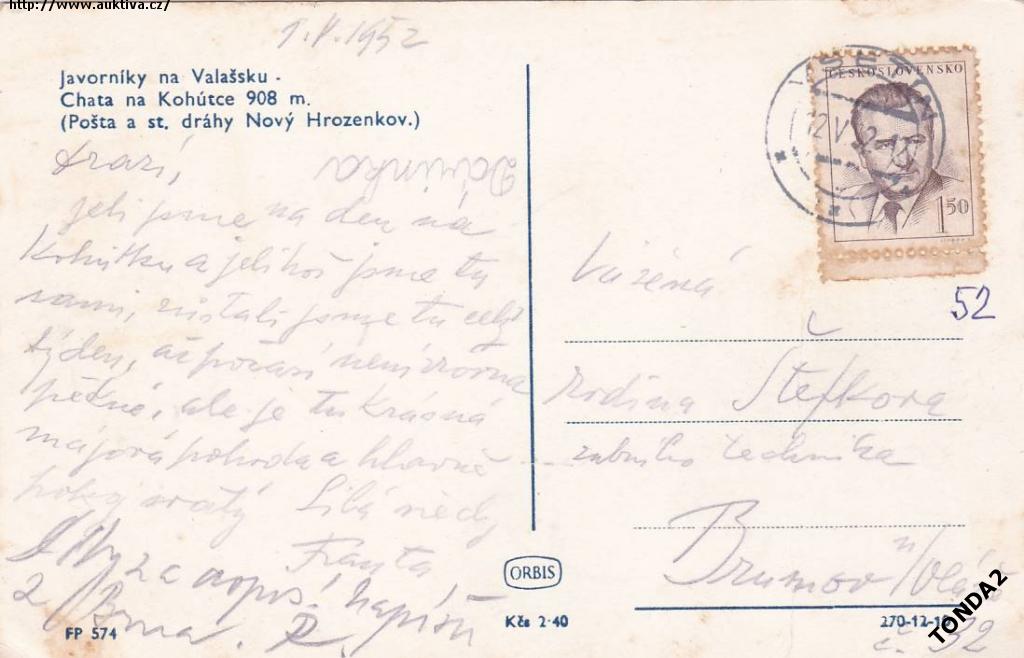 http://www.auktiva.cz/
1.V.1952
Javorníky na Valašsku -
Chata na Kohútce 908 m.
(Pošta a st. dráhy Nový Hrozenkov.)
Drazí,
jeli jsme na den na
Kohútku a jelikož jsme tu
sami, zůstali jsme tu celý
týden, ač počasí není zrovna
pěkné, ale je tu krásná
májová pohoda a hlavně
Líbá
Franta
napíši
z Brna. R.
FP 574
ČESKOSLOVENSKO
1 50
VSETÍN
12 V 52
52
Vážená
rodina Štefkova
zubního technika
Brumov n/Vláří
č. 32
ORBIS
Kčs 2·40
270-12-10
TONDA2